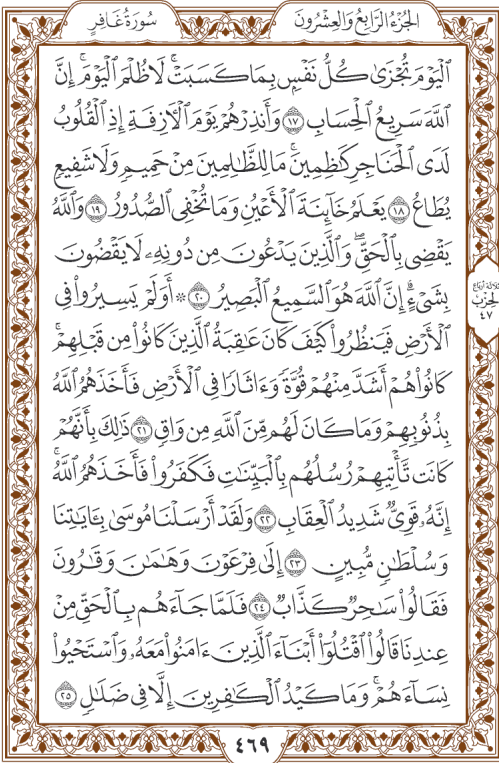 الجزء الرابع والعشرون
سورة غافر
ٱلۡيَوۡمَ تُجۡزَىٰ كُلُّ نَفۡسِۭ بِمَا كَسَبَتۡۚ لَا ظُلۡمَ ٱلۡيَوۡمَۚ إِنَّ
ٱللَّهَ سَرِيعُ ٱلۡحِسَابِ ١٧ وَأَنذِرۡهُمۡ يَوۡمَ ٱلۡأٓزِفَةِ إِذِ ٱلۡقُلُوبُ
لَدَى ٱلۡحَنَاجِرِ كَٰظِمِينَۚ مَا لِلظَّٰلِمِينَ مِنۡ حَمِيمٖ وَلَا شَفِيعٖ
يُطَاعُ ١٨ يَعۡلَمُ خَآئِنَةَ ٱلۡأَعۡيُنِ وَمَا تُخۡفِي ٱلصُّدُورُ ١٩ وَٱللَّهُ
يَقۡضِي بِٱلۡحَقِّۖ وَٱلَّذِينَ يَدۡعُونَ مِن دُونِهِۦ لَا يَقۡضُونَ
بِشَيۡءٍۗ إِنَّ ٱللَّهَ هُوَ ٱلسَّمِيعُ ٱلۡبَصِيرُ ٢٠ ۞ أَوَلَمۡ يَسِيرُواْ فِي
ٱلۡأَرۡضِ فَيَنظُرُواْ كَيۡفَ كَانَ عَٰقِبَةُ ٱلَّذِينَ كَانُواْ مِن قَبۡلِهِمۡۚ
كَانُواْ هُمۡ أَشَدَّ مِنۡهُمۡ قُوَّةٗ وَءَاثَارٗا فِي ٱلۡأَرۡضِ فَأَخَذَهُمُ ٱللَّهُ
بِذُنُوبِهِمۡ وَمَا كَانَ لَهُم مِّنَ ٱللَّهِ مِن وَاقٖ ٢١ ذَٰلِكَ بِأَنَّهُمۡ
كَانَت تَّأۡتِيهِمۡ رُسُلُهُم بِٱلۡبَيِّنَٰتِ فَكَفَرُواْ فَأَخَذَهُمُ ٱللَّهُۚ
إِنَّهُۥ قَوِيّٞ شَدِيدُ ٱلۡعِقَابِ ٢٢ وَلَقَدۡ أَرۡسَلۡنَا مُوسَىٰ بِـَٔايَٰتِنَا
وَسُلۡطَٰنٖ مُّبِينٍ ٢٣ إِلَىٰ فِرۡعَوۡنَ وَهَٰمَٰنَ وَقَٰرُونَ
فَقَالُواْ سَٰحِرٞ كَذَّابٞ ٢٤ فَلَمَّا جَآءَهُم بِٱلۡحَقِّ مِنۡ
عِندِنَا قَالُواْ ٱقۡتُلُوٓاْ أَبۡنَآءَ ٱلَّذِينَ ءَامَنُواْ مَعَهُۥ وَٱسۡتَحۡيُواْ
نِسَآءَهُمۡۚ وَمَا كَيۡدُ ٱلۡكَٰفِرِينَ إِلَّا فِي ضَلَٰلٖ ٢٥
ثلاثة أرباع
الحزب
٤٧
٤٦٩